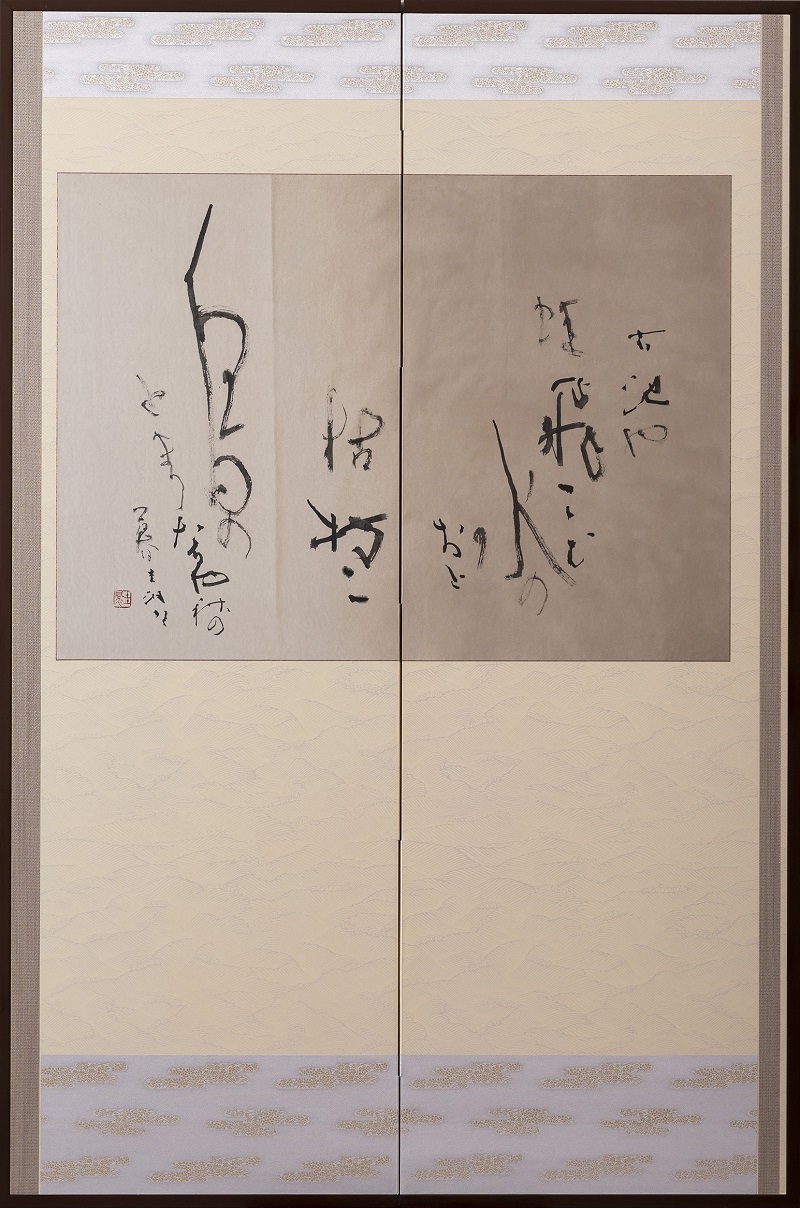 古池や
蛙飛こむ
水の
おと
枯
枝に
烏の
とまり
たるや秋の
暮